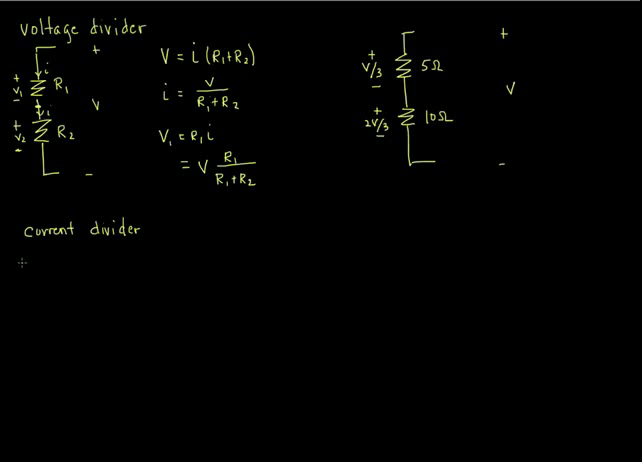 voltage divider
+
i
+
V₁
−
R₁
i
V
+
V₂
−
R₂
−
V = i (R₁+R₂)
i = V / (R₁+R₂)
V₁ = R₁ i
= V R₁ / (R₁+R₂)
+
V/3
−
5Ω
+
V
+
2V/3
−
10Ω
−
current divider